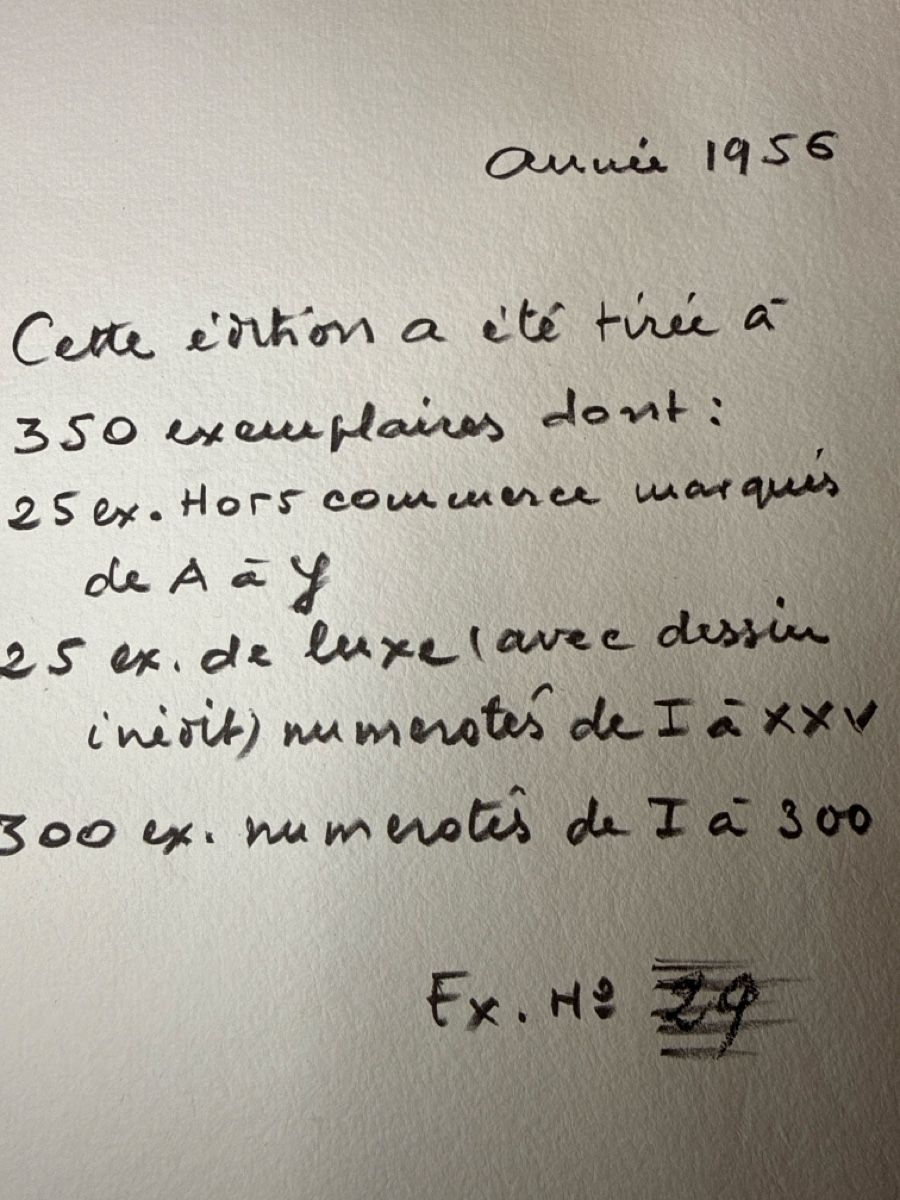 année 1956
Cette édition a été tirée à
350 exemplaires dont :
25 ex. Hors commerce marqués
de A à Y
25 ex. de luxe (avec dessin
inédit) numerotés de I à XXV
300 ex. numerotés de I à 300
Ex. Nº 29